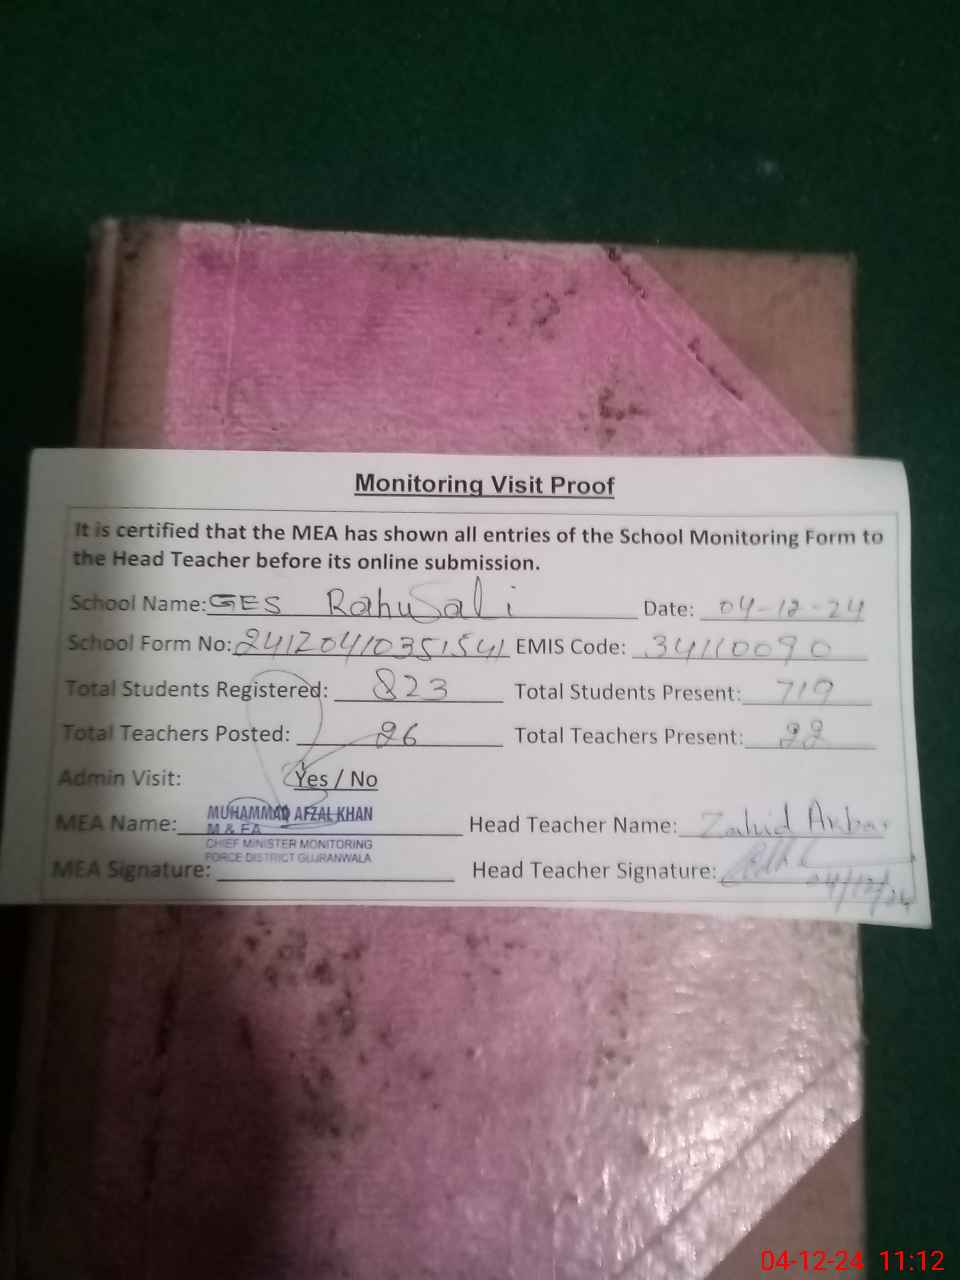 Monitoring Visit Proof
It is certified that the MEA has shown all entries of the School Monitoring Form to
the Head Teacher before its online submission.
School Name: GES RahuSali Date: 04-12-24
School Form No: 24120410351541 EMIS Code: 34110090
Total Students Registered: 823 Total Students Present: 719
Total Teachers Posted: 26 Total Teachers Present: 22
Admin Visit: Yes / No
MEA Name: MUHAMMAD AFZAL KHAN Head Teacher Name: Zahid Akbar
M & EA
CHIEF MINISTER MONITORING
FORCE DISTRICT GUJRANWALA
MEA Signature: Head Teacher Signature:
04/12/24
04-12-24 11:12